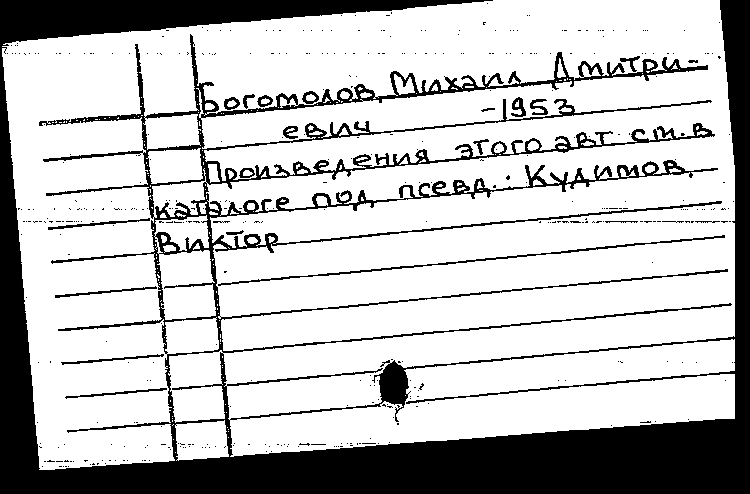 Богомолов, Михаил Дмитри-
евич -1953
Произведения этого авт см. в
каталоге под псевд.: Кудимов,
Виктор